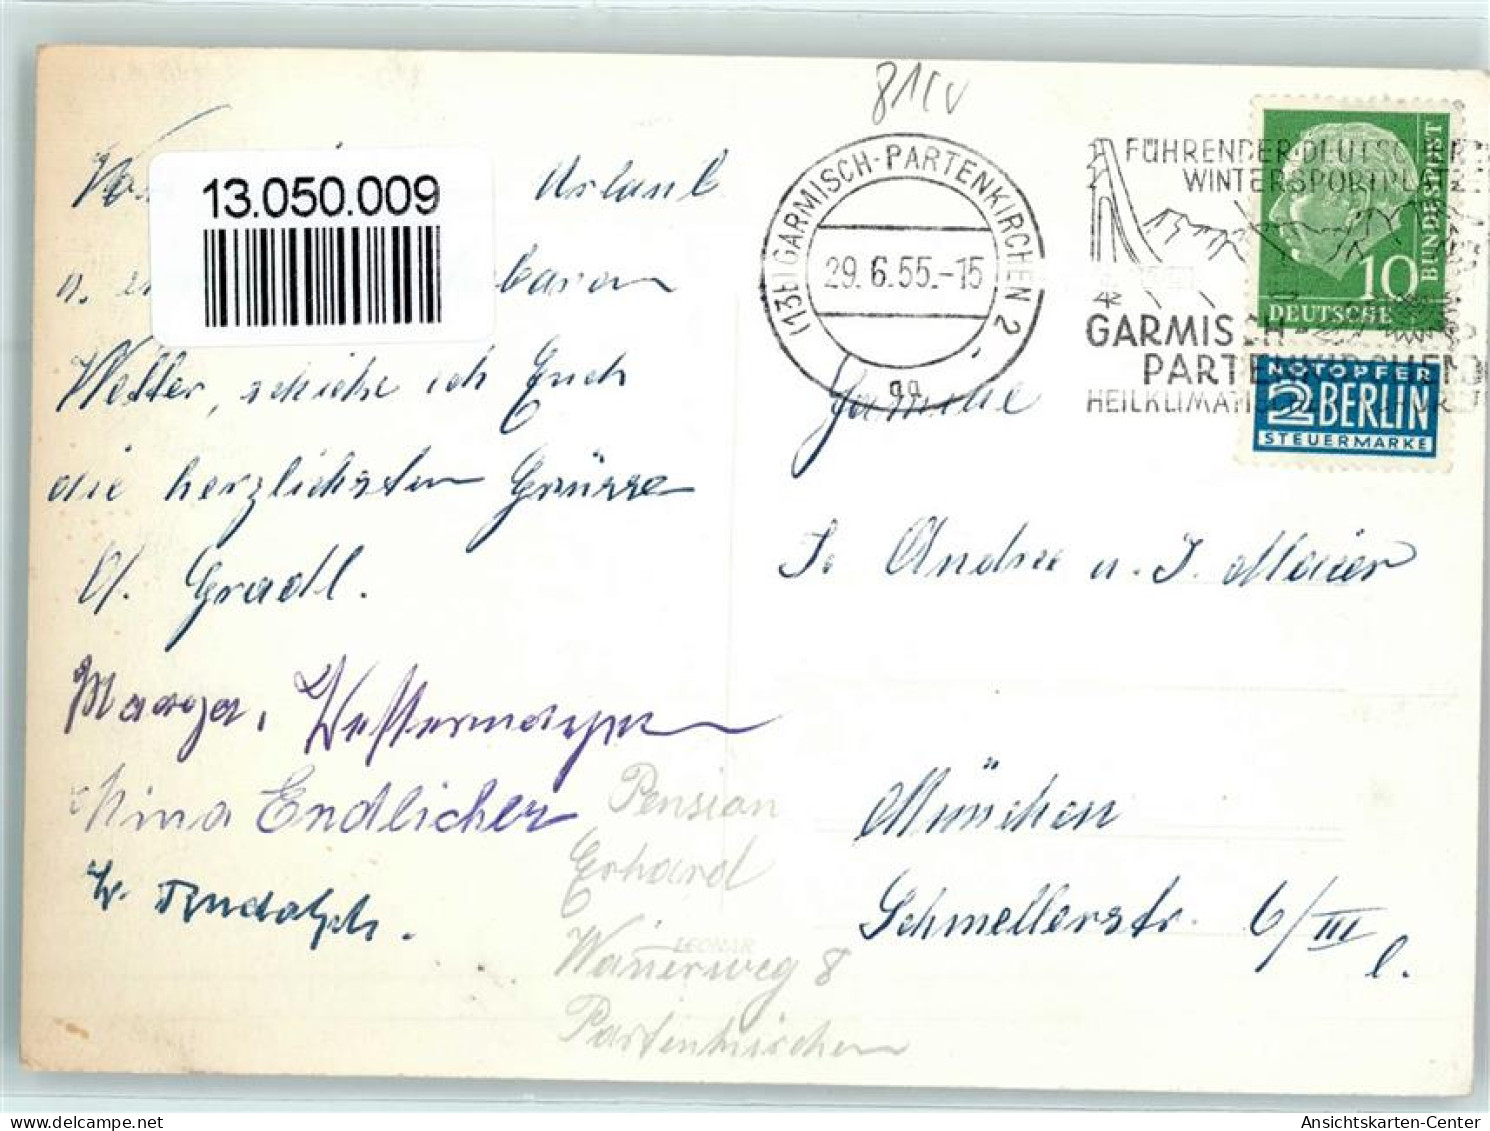 13.050.009
Urlaub
u.
baren
Wetter, schicke ich Euch
die herzlichsten Grüsse
A. Gradl.
Westermayer
Nina Endlicher
Rudolph.
Pension
Erhard
8
Partenkirchen
LEONAR
(13b) GARMISCH-PARTENKIRCHEN 2
29.6.55.-15
aa
FÜHRENDER DEUTSCHER
WINTERSPORTPLATZ
GARMISCH
PARTENKIRCHEN
10
DEUTSCHE
BUNDESPOST
NOTOPFER
2 BERLIN
STEUERMARKE
Familie
u. J. Maier
München
Schmellerstr. 6/III
l.
Ansichtskarten-Center.de
Ansichtskarten-Center